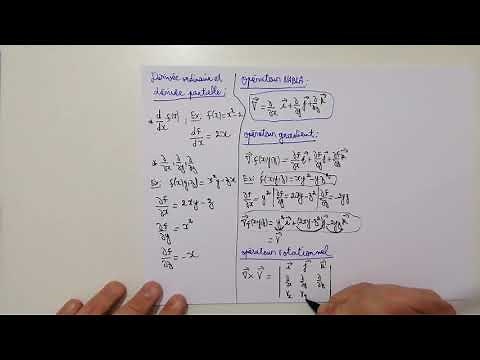 Dérivée ordinaire et
dérivée partielle:
* d/dx f(x) ; Ex: f(x)=x²-2
df/dx = 2x
* ∂/∂x ; ∂/∂y ; ∂/∂z
Ex: f(x,y,z)= x²y-zx
∂f/∂x = 2xy - z
∂f/∂y = x²
∂f/∂z = -x
opérateur NABLA.
∇⃗ = ∂/∂x i⃗ + ∂/∂y j⃗ + ∂/∂z k⃗
opérateur gradient:
∇⃗ f(x,y,z) = ∂f/∂x i⃗ + ∂f/∂y j⃗ + ∂f/∂z k⃗
Ex: f(x,y,z) = xy² - yz²
∂f/∂x = y² | ∂f/∂y = 2xy - z² | ∂f/∂z = -2yz
∇⃗ f(x,y,z) = y² i⃗ + (2xy - z²) j⃗ - 2yz k⃗
= V⃗
opérateur rotationnel
∇⃗ x V⃗ = | i⃗ j⃗ k⃗
∂/∂x ∂/∂y ∂/∂z
Vx Vy